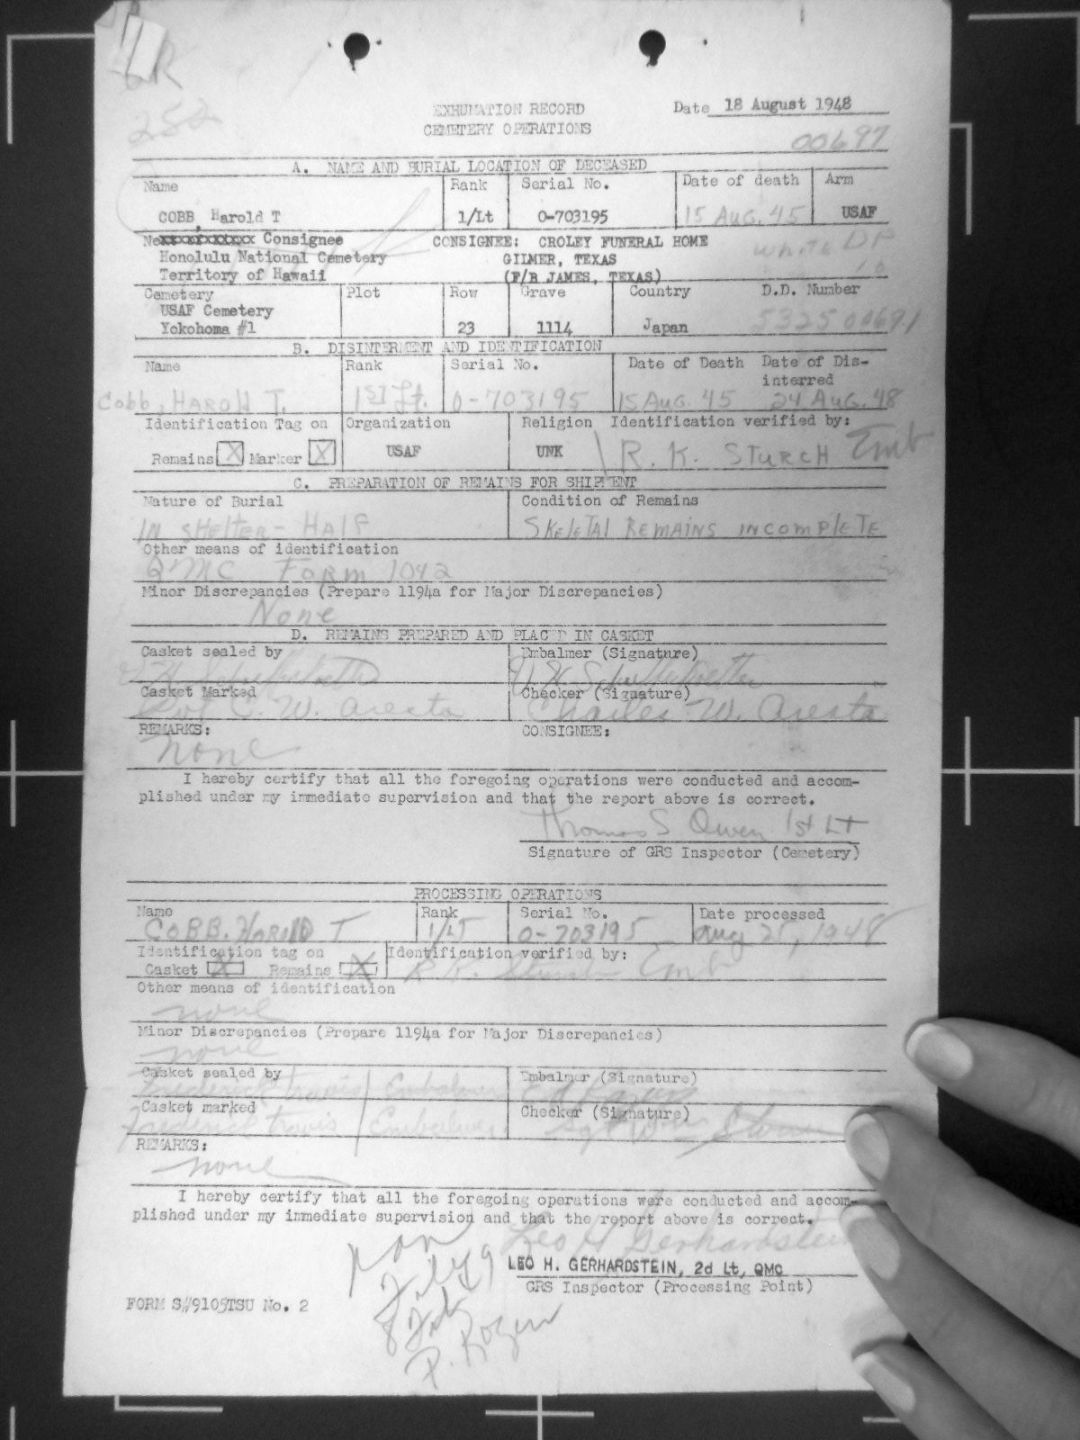 252
EXHUMATION RECORD
CEMETERY OPERATIONS
Date 18 August 1948
00697
A. NAME AND BURIAL LOCATION OF DECEASED
Name Rank Serial No. Date of death Arm
COBB, Harold T 1/Lt O-703195 15 Aug. 45 USAF
Consignee CONSIGNEE: CROLEY FUNERAL HOME
Honolulu National Cemetery GILMER, TEXAS
Territory of Hawaii (F/R JAMES, TEXAS)
Cemetery Plot Row Grave Country D.D. Number
USAF Cemetery
Yokohoma #1 23 1114 Japan 5325 00691
B. DISINTERMENT AND IDENTIFICATION
Name Rank Serial No. Date of Death Date of Dis-
interred
Cobb, HAROLD T. 1ST Lt. O-703195 15 Aug. 45 24 Aug. 48
Identification Tag on Organization Religion Identification verified by:
Remains X Marker X USAF UNK R. K. STURCH Emb
C. PREPARATION OF REMAINS FOR SHIPMENT
Nature of Burial Condition of Remains
IN SHELTER - HALF SKELETAL REMAINS INCOMPLETE
Other means of identification
QMC FORM 1042
Minor Discrepancies (Prepare 1194a for Major Discrepancies)
None
D. REMAINS PREPARED AND PLACED IN CASKET
Casket sealed by Embalmer (Signature)
Casket Marked Checker (Signature)
C. W. Aresta Charles W. Aresta
REMARKS: CONSIGNEE:
none
I hereby certify that all the foregoing operations were conducted and accom-
plished under my immediate supervision and that the report above is correct.
Thomas S Owen 1st LT
Signature of GRS Inspector (Cemetery)
PROCESSING OPERATIONS
Name Rank Serial No. Date processed
COBB, HAROLD T 1/LT O-703195 Aug 25, 1948
Identification tag on Identification verified by:
Casket X Remains X R. K. Sturch Emb
Other means of identification
none
Minor Discrepancies (Prepare 1194a for Major Discrepancies)
none
Casket sealed by Embalmer (Signature)
Frederick Travis Embalmer
Casket marked Checker (Signature)
Frederick Travis Embalmer
REMARKS:
none
I hereby certify that all the foregoing operations were conducted and accom-
plished under my immediate supervision and that the report above is correct.
Leo H Gerhardstein
LEO H. GERHARDSTEIN, 2d Lt, QMC
GRS Inspector (Processing Point)
FORM S#9105TSU No. 2